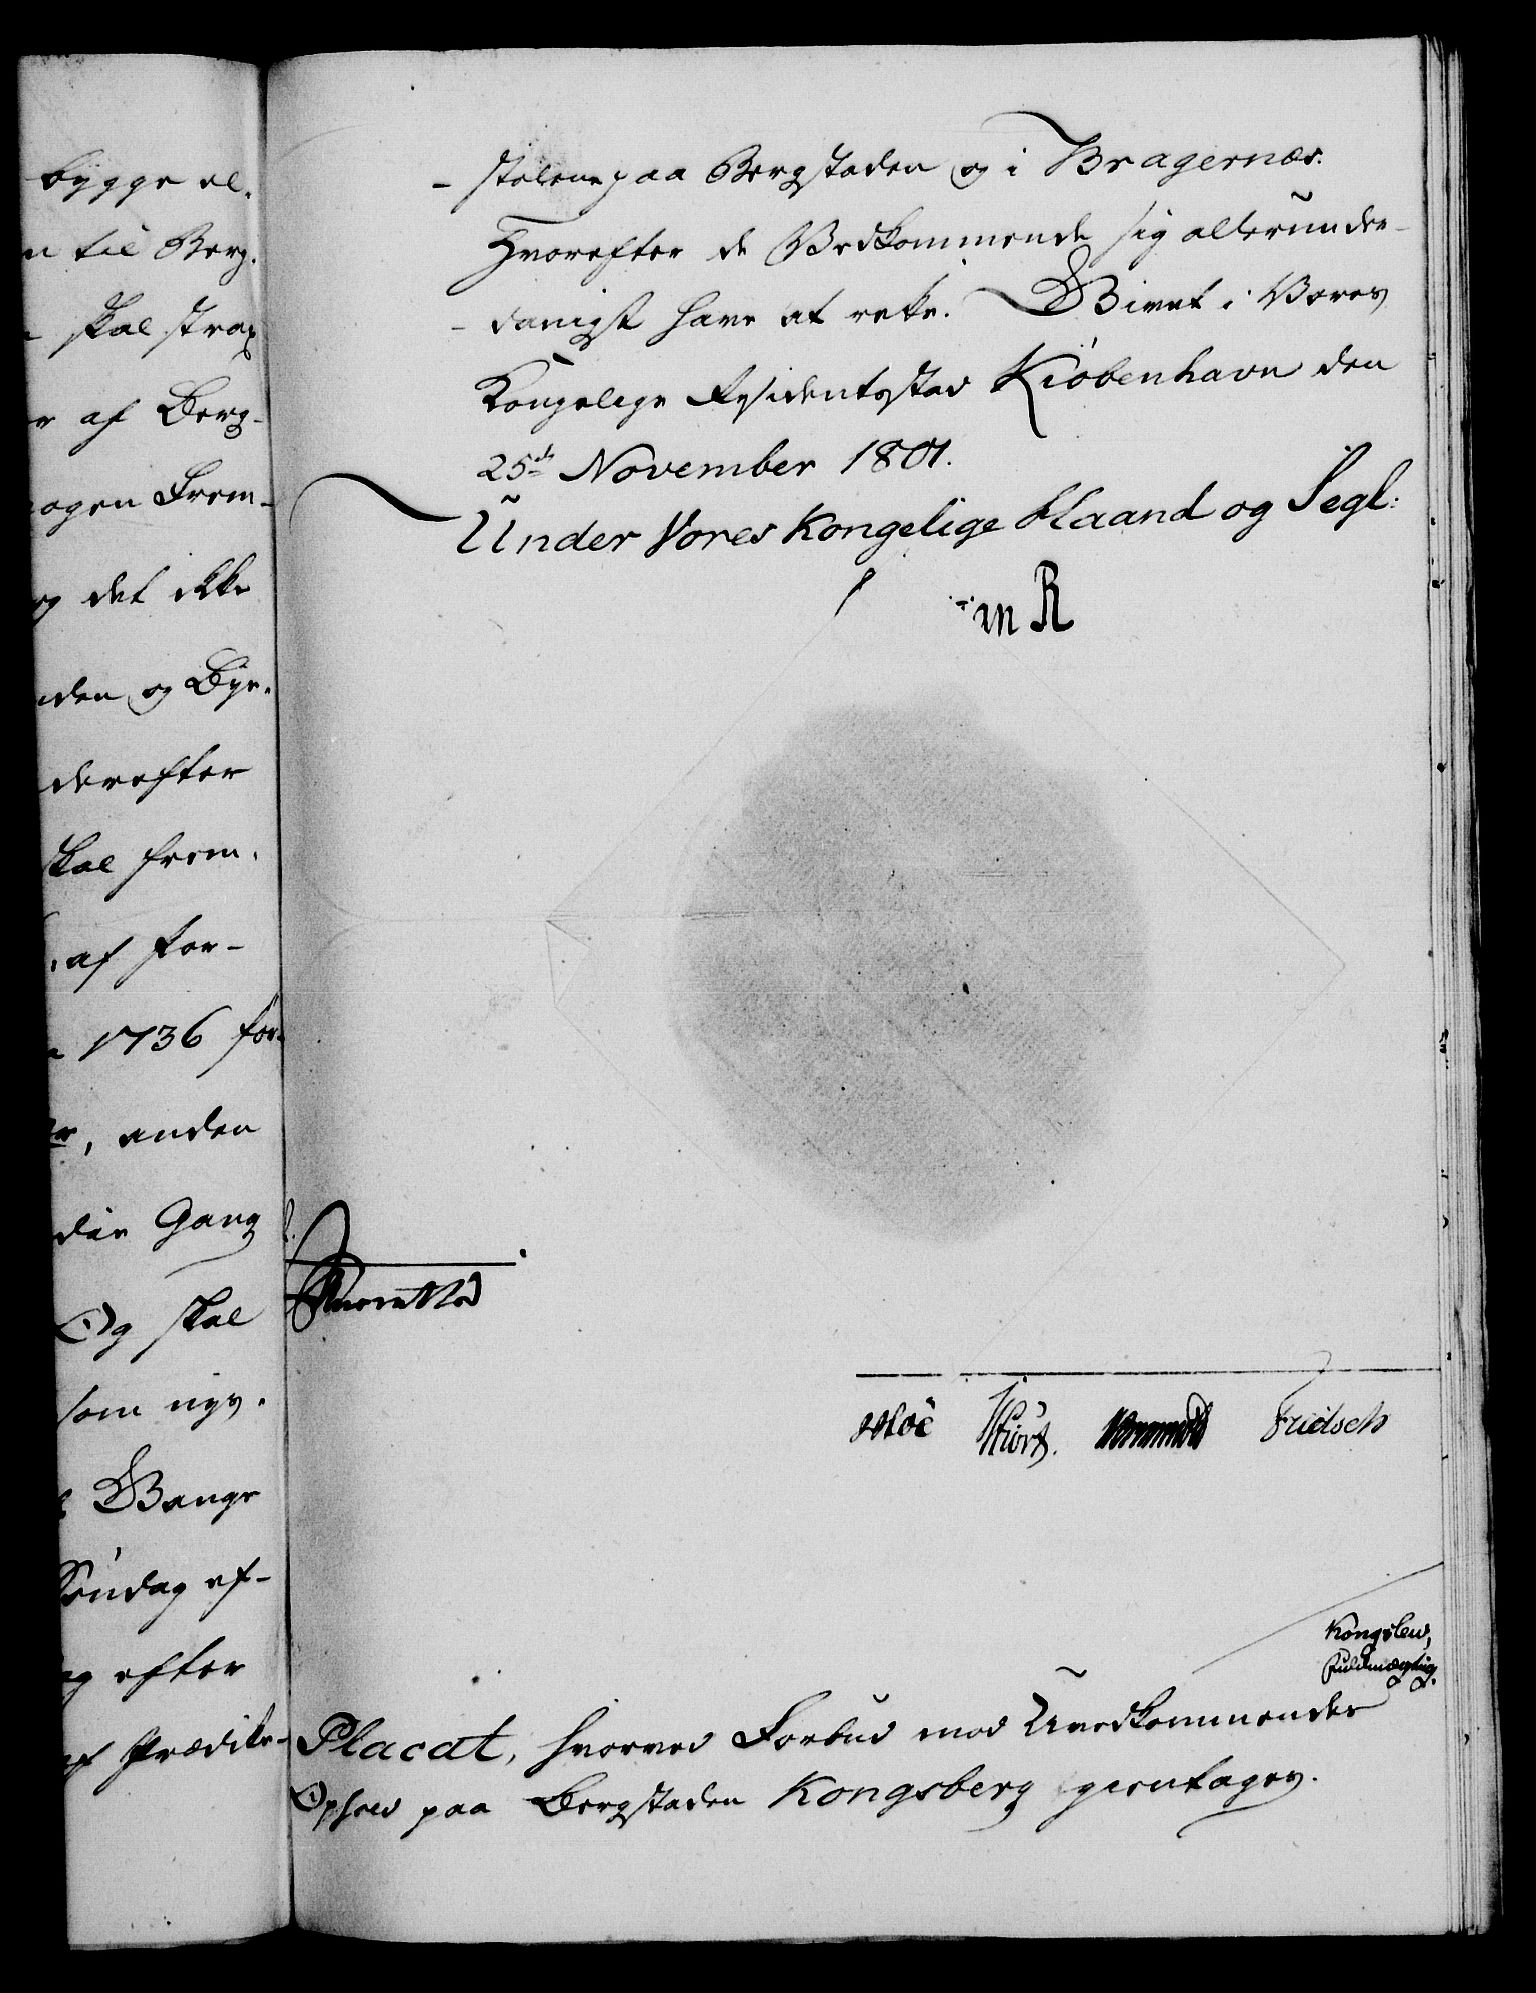 bygge el-
n til Berg-
skal strax
r af Berg-
nogen Frem-
og det ikke
nden og Bye-
derefter
skal frem-
af for-
1736 for-
er, anden
die Gang
Og skal
som nys-
Gange
Søndag ef-
og efter
af Prædike-
- stolene paa Bergstaden og i Bragernæs.
Hvorefter de Vedkommende sig allerunder-
- danigst have at rette. Givet i Vores
Kongelige Residentzstad Kiöbenhavn den
25de November 1801.
Under Vores Kongelige Haand og Segl:
R
Moe Hiort. Fridsch
Kongslew,
Fuldmægtig.
Placat, hvorved Forbud mod Uvedkommendes
Ophold paa Bergstaden Kongsberg gientages.